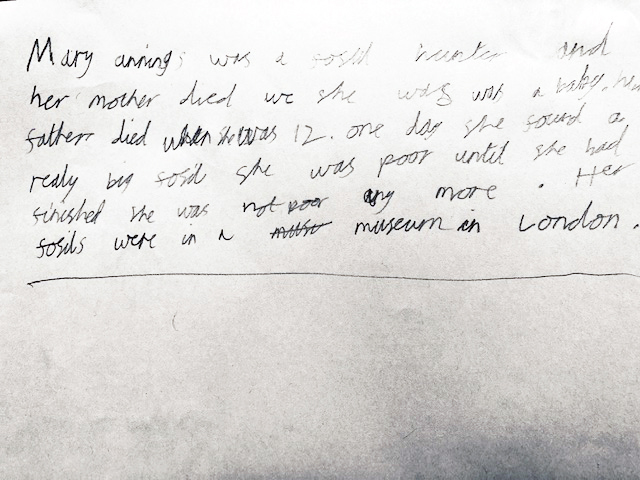 Mary anning was a fosil hunter and
her mother died wc she was was a baby. her
father died when she was 12. one day she found a
realy big fosil she was poor until she had
finished she was not poor any more. Her
fosils were in a museum in London.